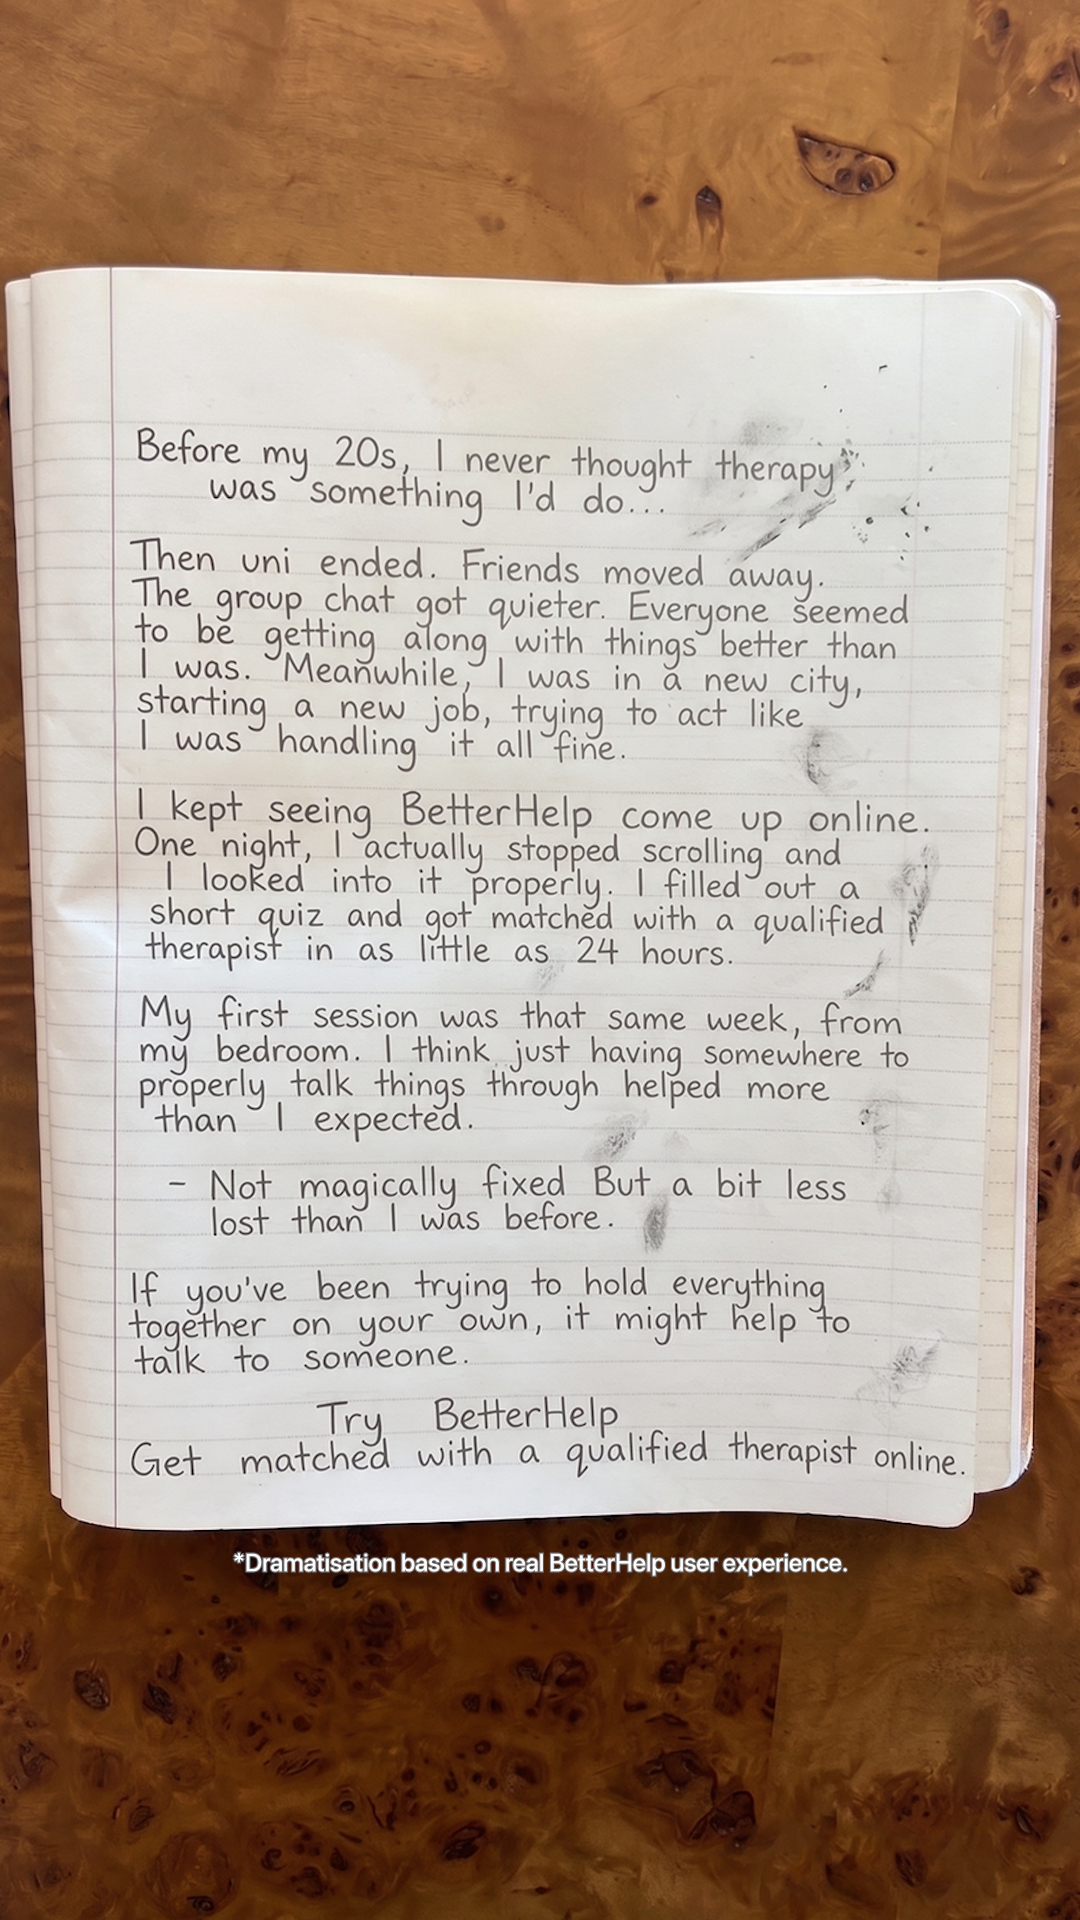 Before my 20s, I never thought therapy
was something I'd do...
Then uni ended. Friends moved away.
The group chat got quieter. Everyone seemed
to be getting along with things better than
I was. Meanwhile, I was in a new city,
starting a new job, trying to act like
I was handling it all fine.
I kept seeing BetterHelp come up online.
One night, I actually stopped scrolling and
I looked into it properly. I filled out a
short quiz and got matched with a qualified
therapist in as little as 24 hours.
My first session was that same week, from
my bedroom. I think just having somewhere to
properly talk things through helped more
than I expected.
- Not magically fixed But a bit less
lost than I was before.
If you've been trying to hold everything
together on your own, it might help to
talk to someone.
Try BetterHelp
Get matched with a qualified therapist online.
*Dramatisation based on real BetterHelp user experience.